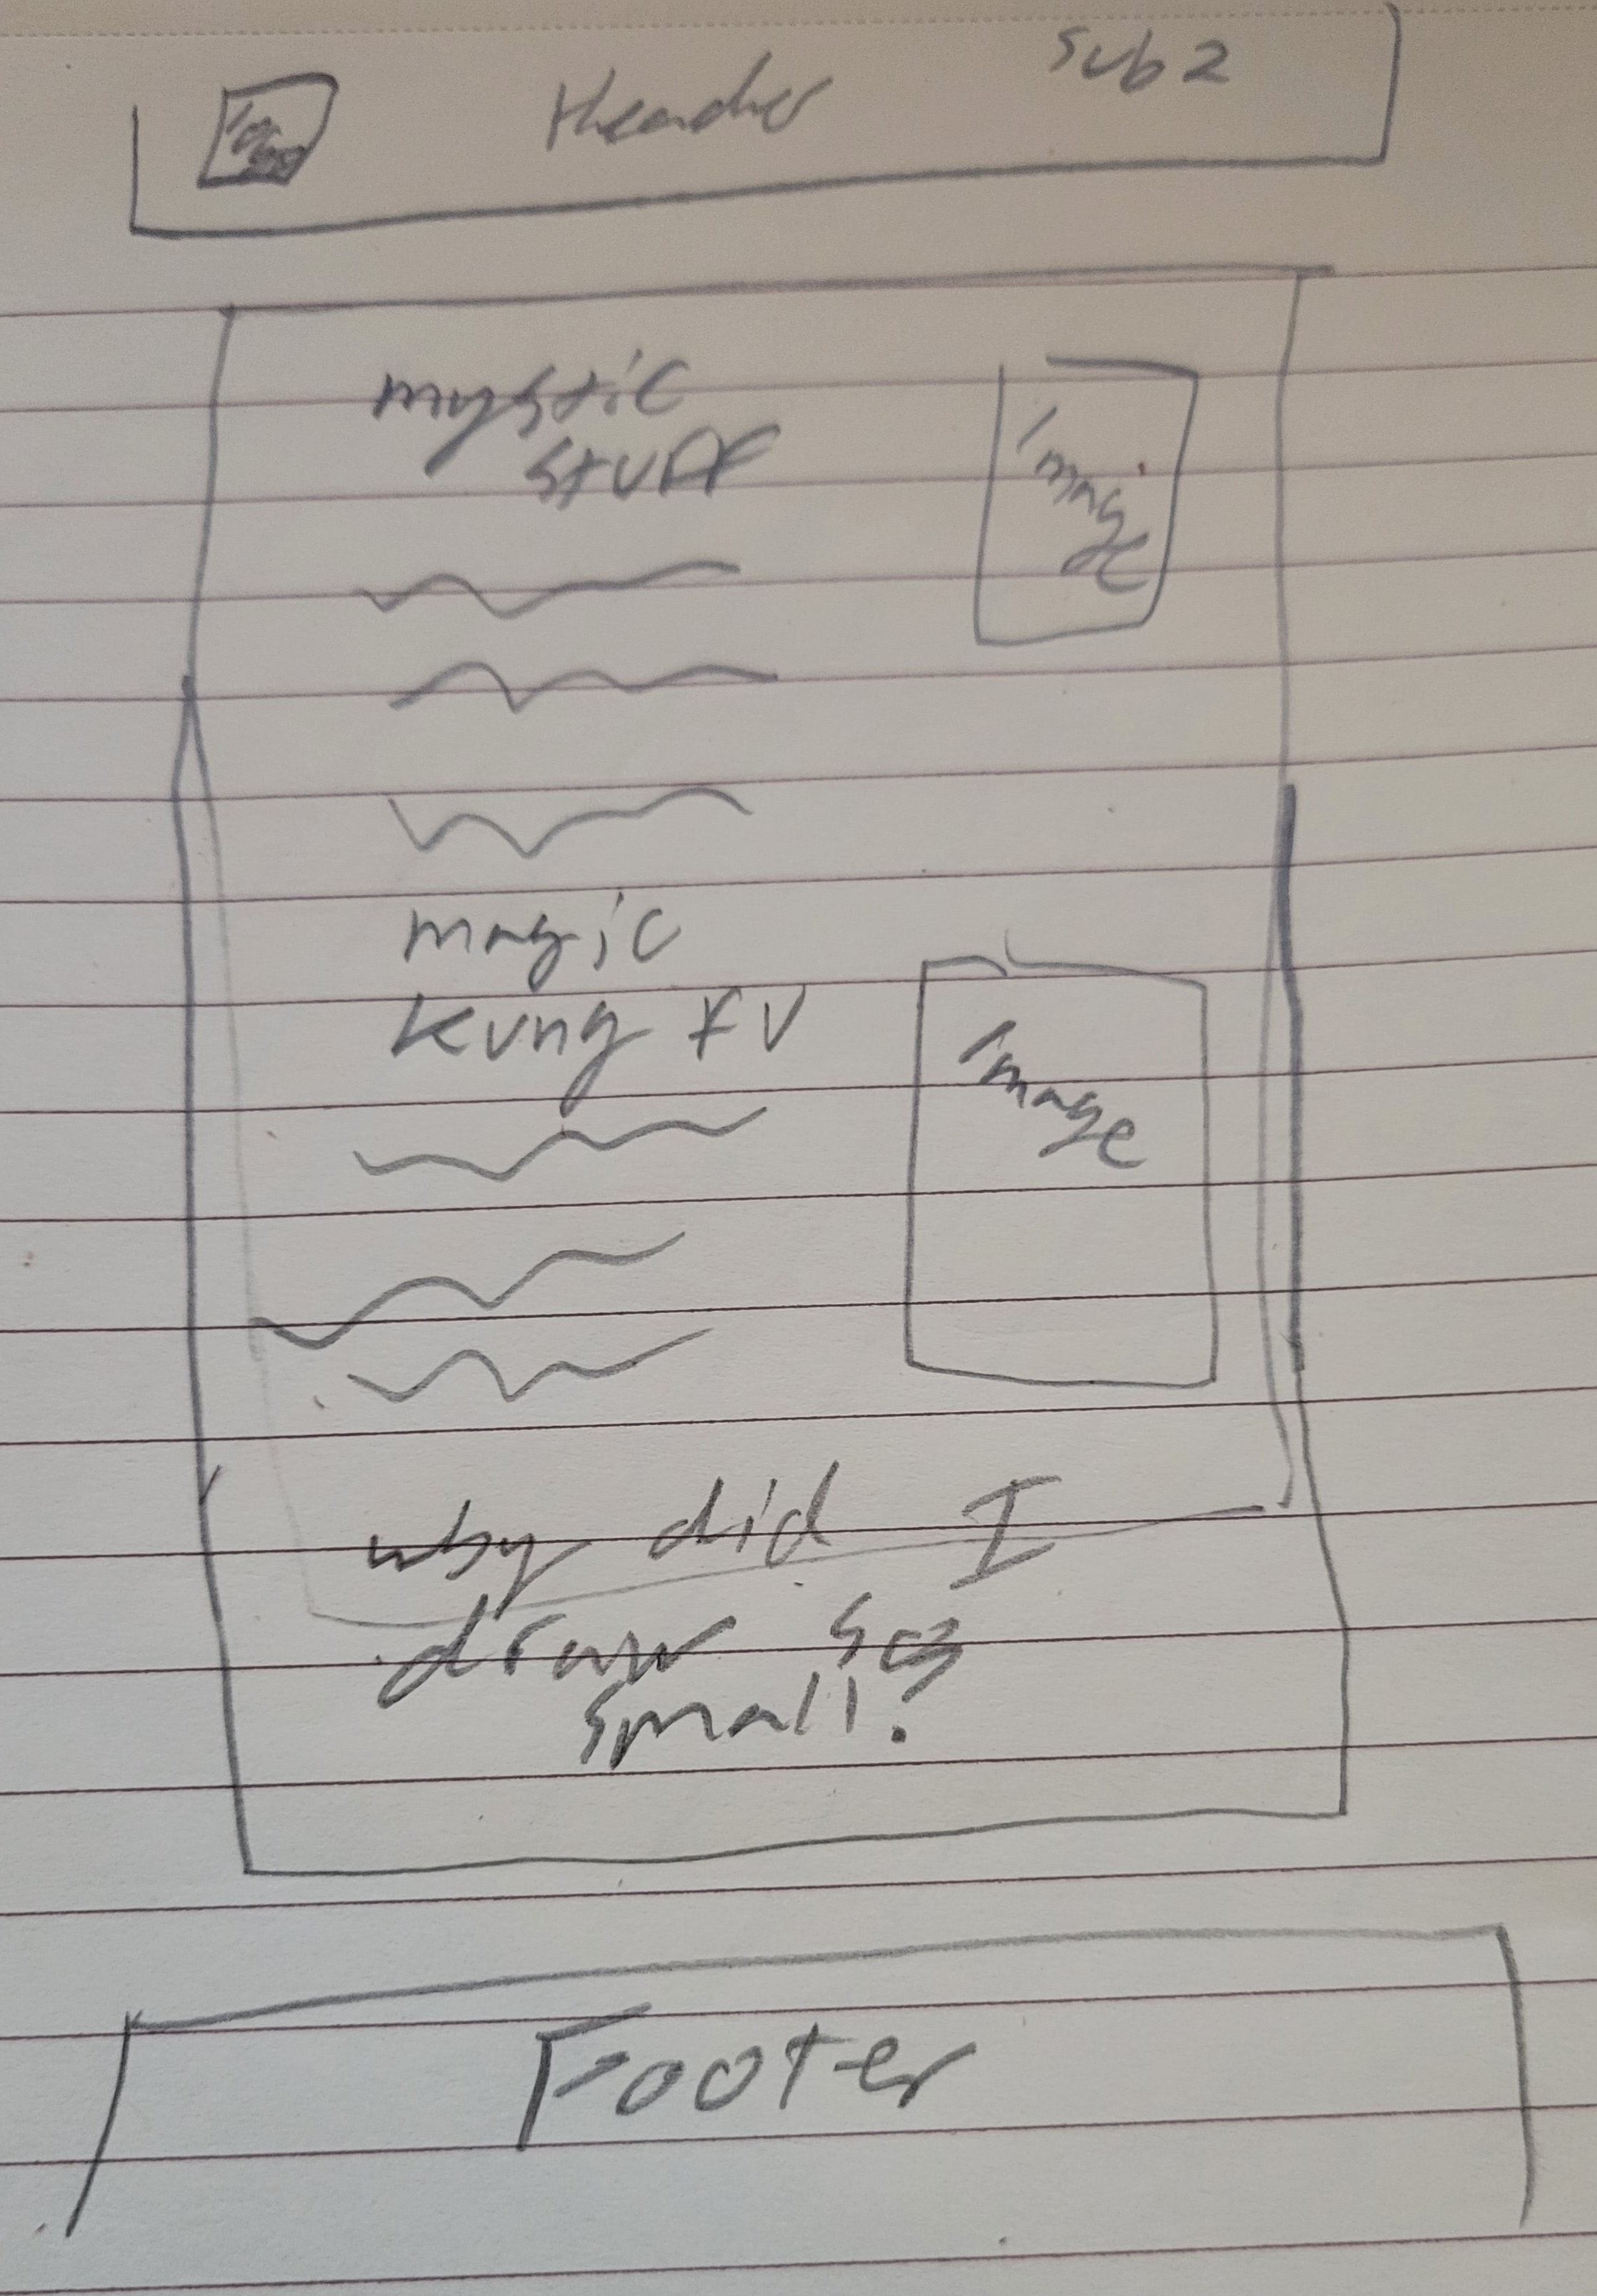 Header
sub 2
mystic
stuff
Image
magic
kung fu
Image
why did I
draw so
small?
Footer